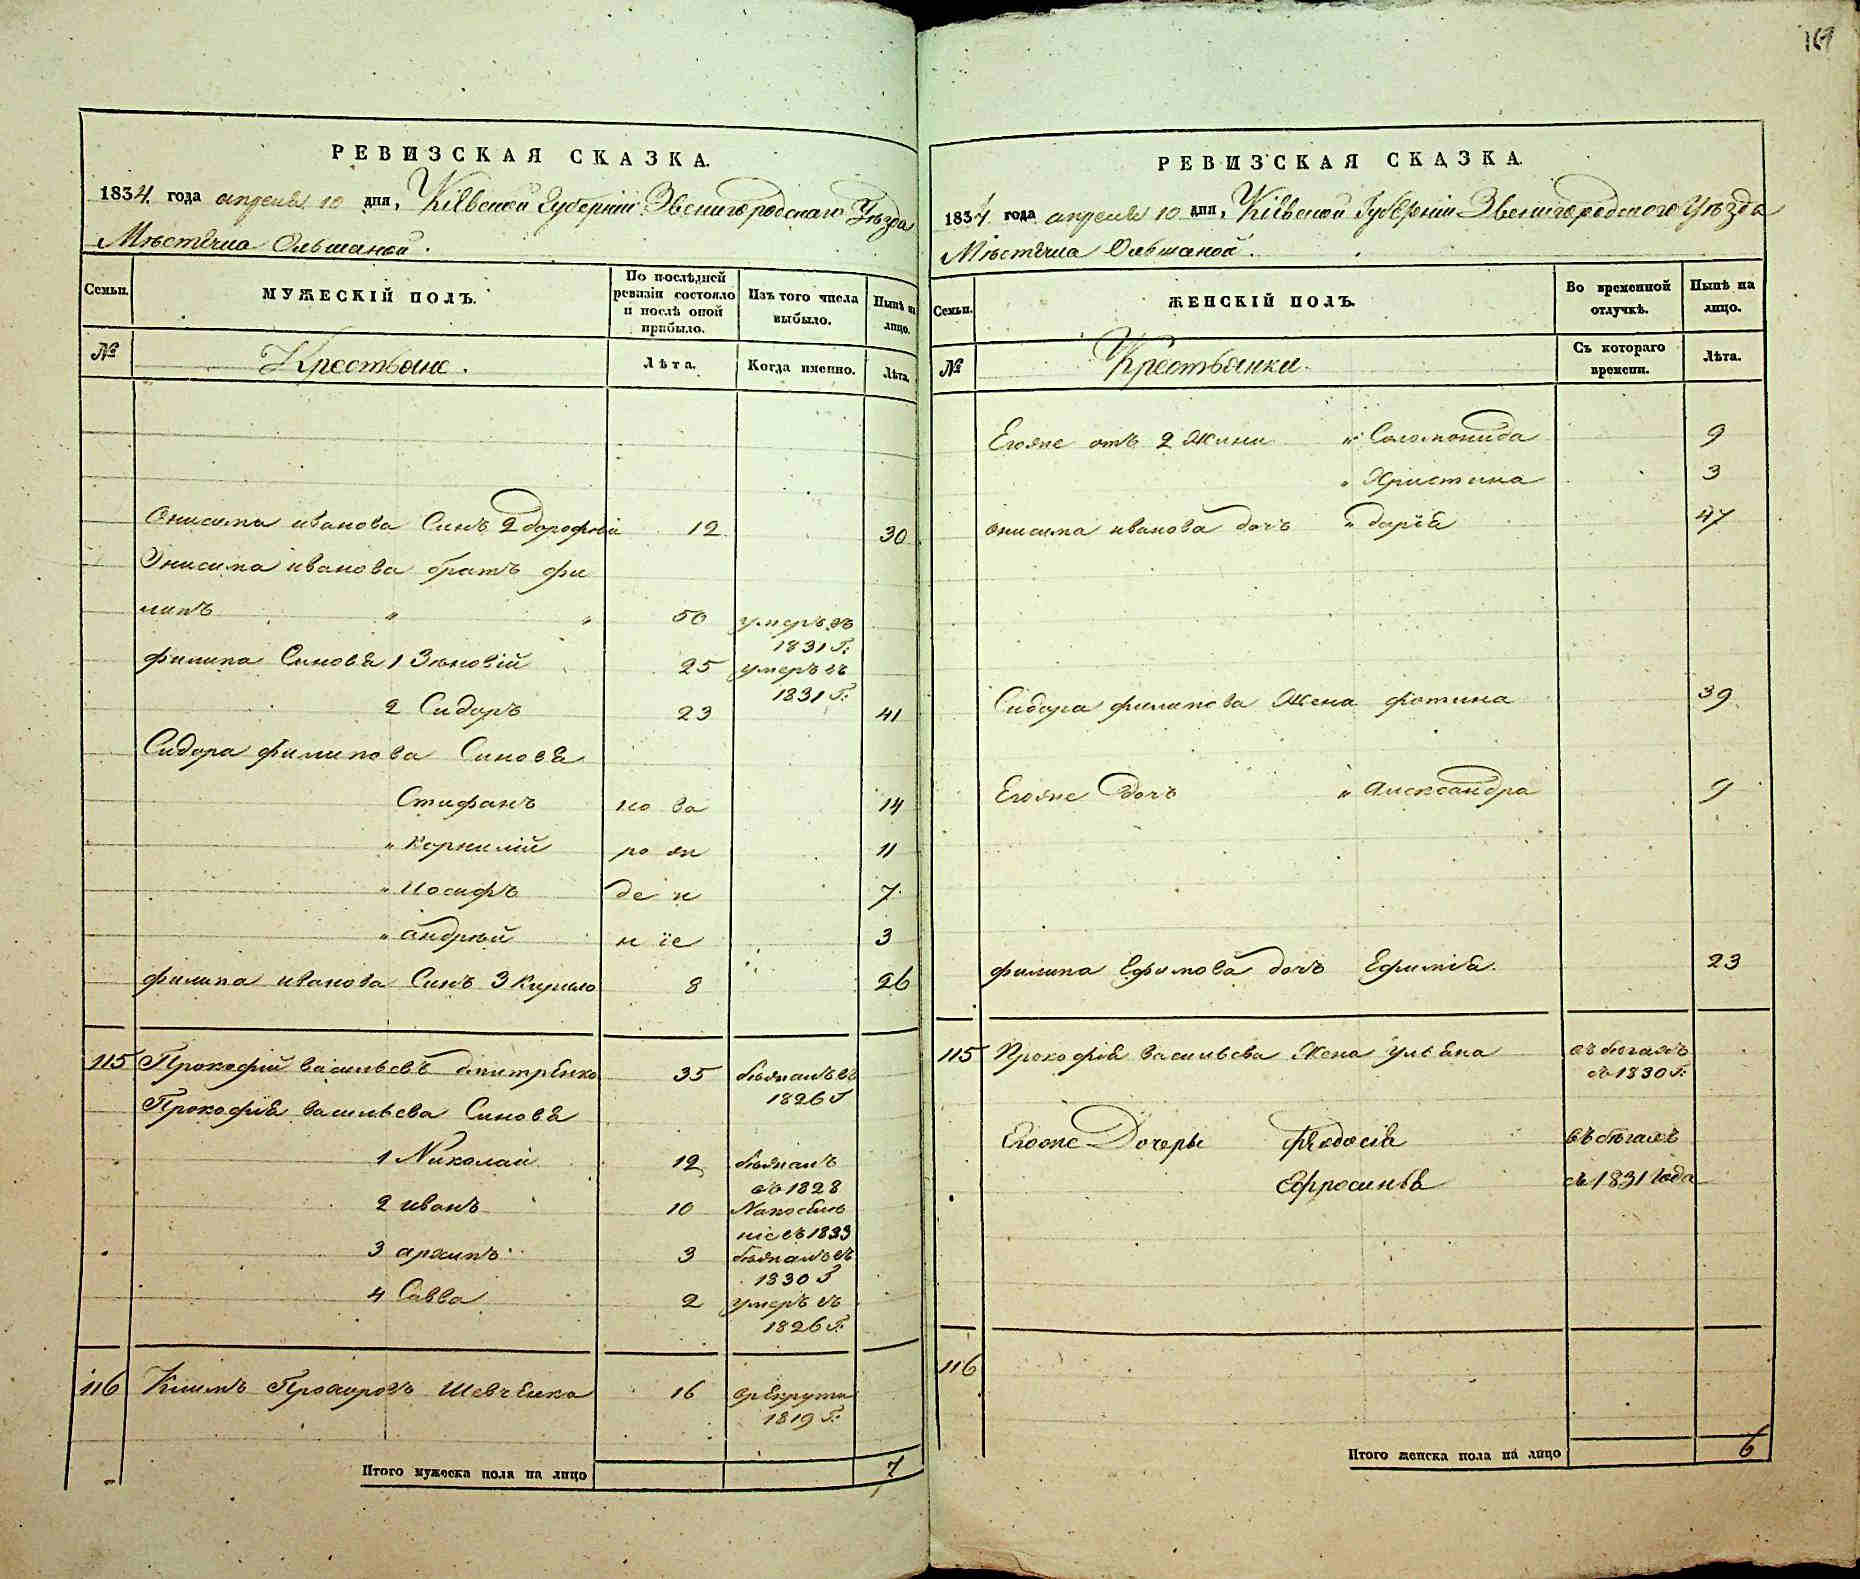 169
РЕВИЗСКАЯ СКАЗКА.
1834 года апреля 10 дня, Кіевской Губерніи Звенигородскаго Уѣзда
Мѣстечка Ольшаной.
Семьи.
МУЖЕСКІЙ ПОЛЪ.
По послѣдней ревизіи состояло и послѣ оной прибыло.
Изъ того числа выбыло.
Нынѣ на лицо.
№
Крестьяне.
Лѣта.
Когда именно.
Лѣта.
Онисима иванова Синъ 2 дорофѣй 12 30
Онисима иванова братъ фи
липъ " " 50 умеръ въ 1831 Г:
филипа Синовя 1 Зѣновій 25 умеръ въ 1831 Г:
2 Сидоръ 23 41
Сидора филипова Синовя
Стифанъ но ва 14
" Корнилій ро жд 11
" Иосифъ де н 7
" андрѣй н іе 3
филипа иванова Синъ 3 Кирило 8 26
115 Прокофій васильевъ дмитренко 35 бѣжалъ въ 1826 Г
Прокофія васильева Синовя
1 Николай 12 бѣжалъ въ 1828
2 иванъ 10 въ 1833
3 архипъ 3 бѣжалъ въ 1830 Г
4 Савва 2 умеръ въ 1826 Г:
116 Климъ Прохоровъ Шевченко 16 врекруты 1819 Г:
Итого мужеска пола на лицо 7
РЕВИЗСКАЯ СКАЗКА.
1834 года апреля 10 дня, Кіевской Губерніи Звенигородского Уѣзда
Мѣстечка Ольшаной.
Семьи.
ЖЕНСКІЙ ПОЛЪ.
Во временной отлучкѣ.
Нынѣ на лицо.
№
Крестьянки.
Съ котораго времени.
Лѣта.
Егоже отъ 2 жини " Соломонида 9
" Христина 3
онисима иванова дочъ " дарія 47
Сидора филипова Жена фотина 39
Егоже дочъ " александра 9
филипа дочъ Ефимія 23
115 Прокофія васильева Жена ульяна въ бегахъ съ 1830 Г:
Егоже Дочеры Феодосія въ бѣгахъ
Ефросинья съ 1831 года
116
Итого женска пола на лицо 6